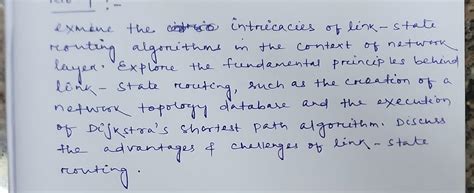 exmine the intricacies of link-state
routing algorithms in the context of network
layer. Explore the fundamental principles behind
link-state routing, such as the creation of a
network topology database and the execution
of Dijkstra's shortest path algorithm. Discuss
the advantages & challenges of link-state
routing.